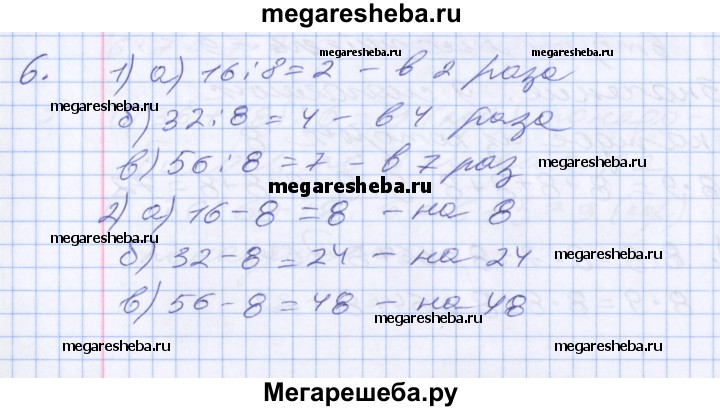 megaresheba.ru
6. 1) а) 16:8=2 - в 2 раза
megaresheba.ru
megaresheba.ru
б) 32:8=4 - в 4 раза
megaresheba.ru
в) 56:8=7 - в 7 раз
megaresheba.ru
megaresheba.ru
2) а) 16-8=8 - на 8
megaresheba.ru
б) 32-8=24 - на 24
megaresheba.ru
в) 56-8=48 - на 48
megaresheba.ru
megaresheba.ru
megaresheba.ru
Мегарешеба.ру